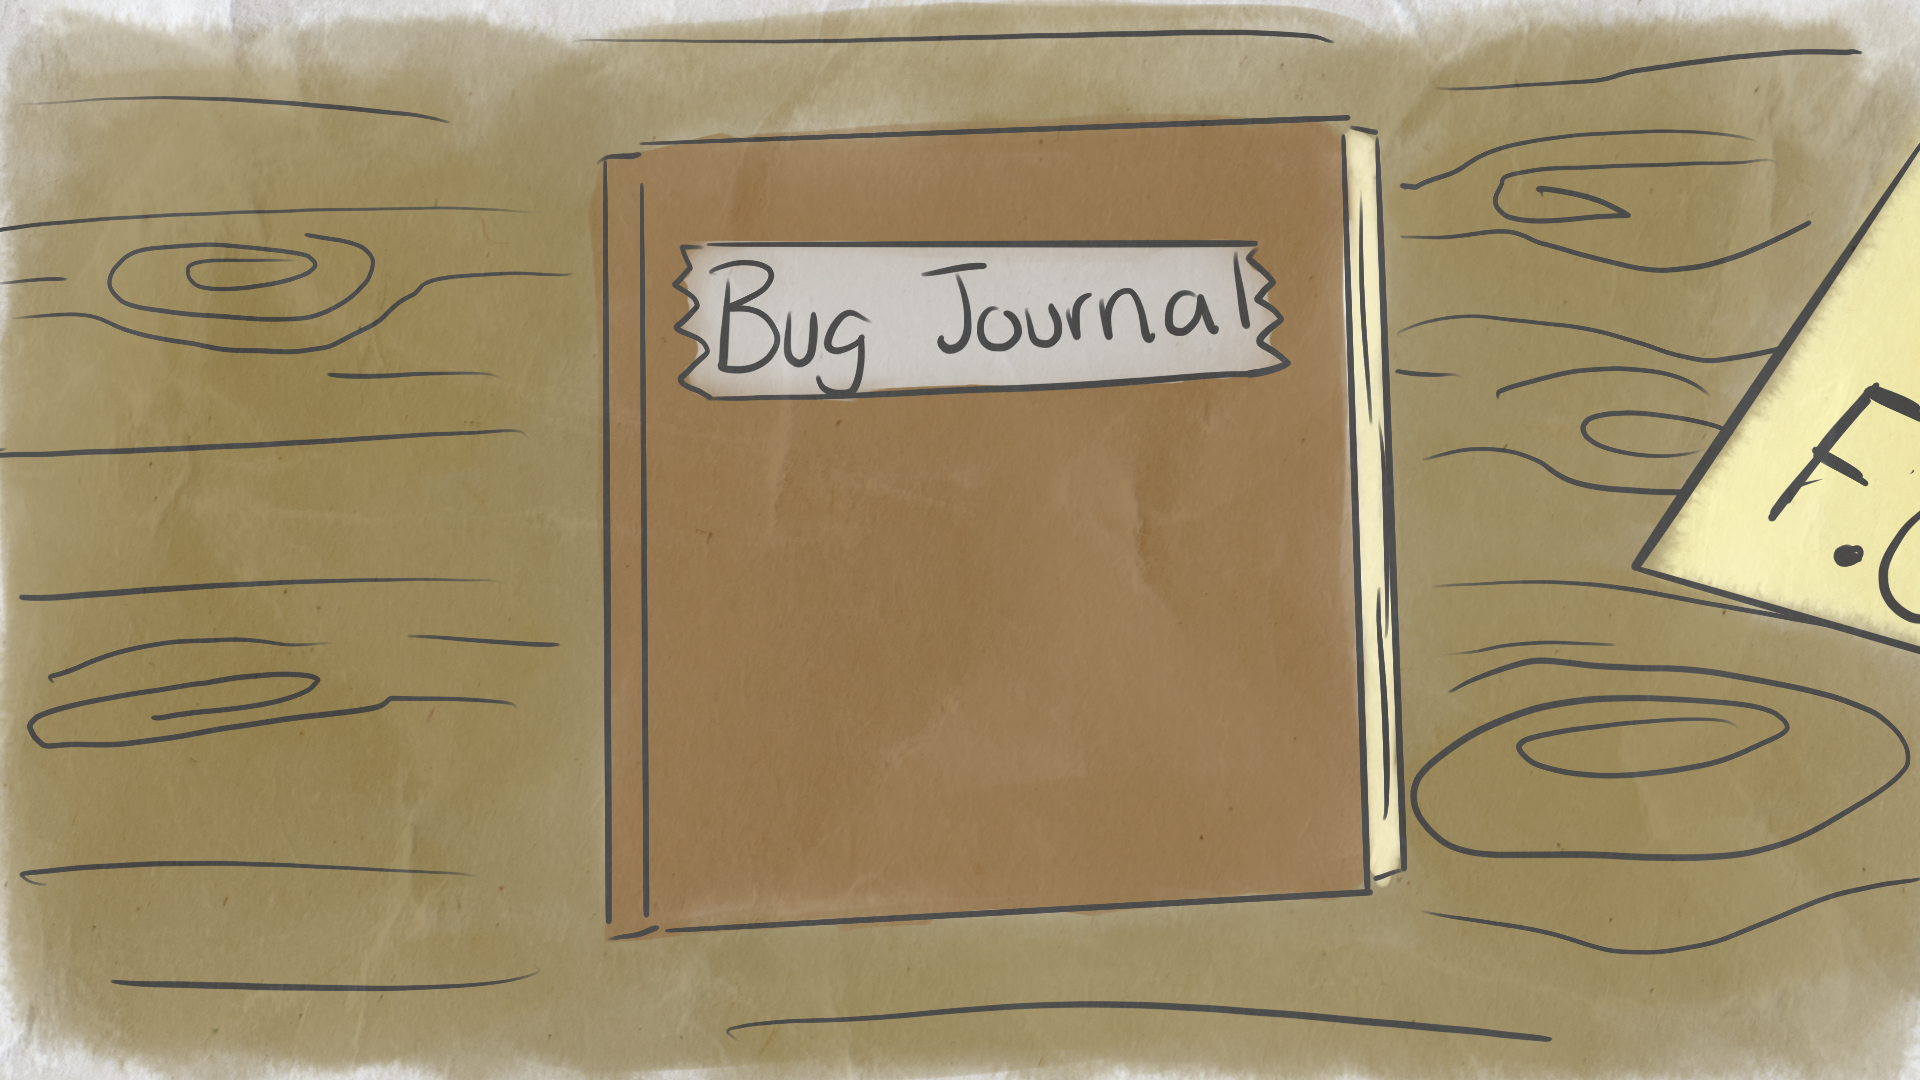 Bug Journal